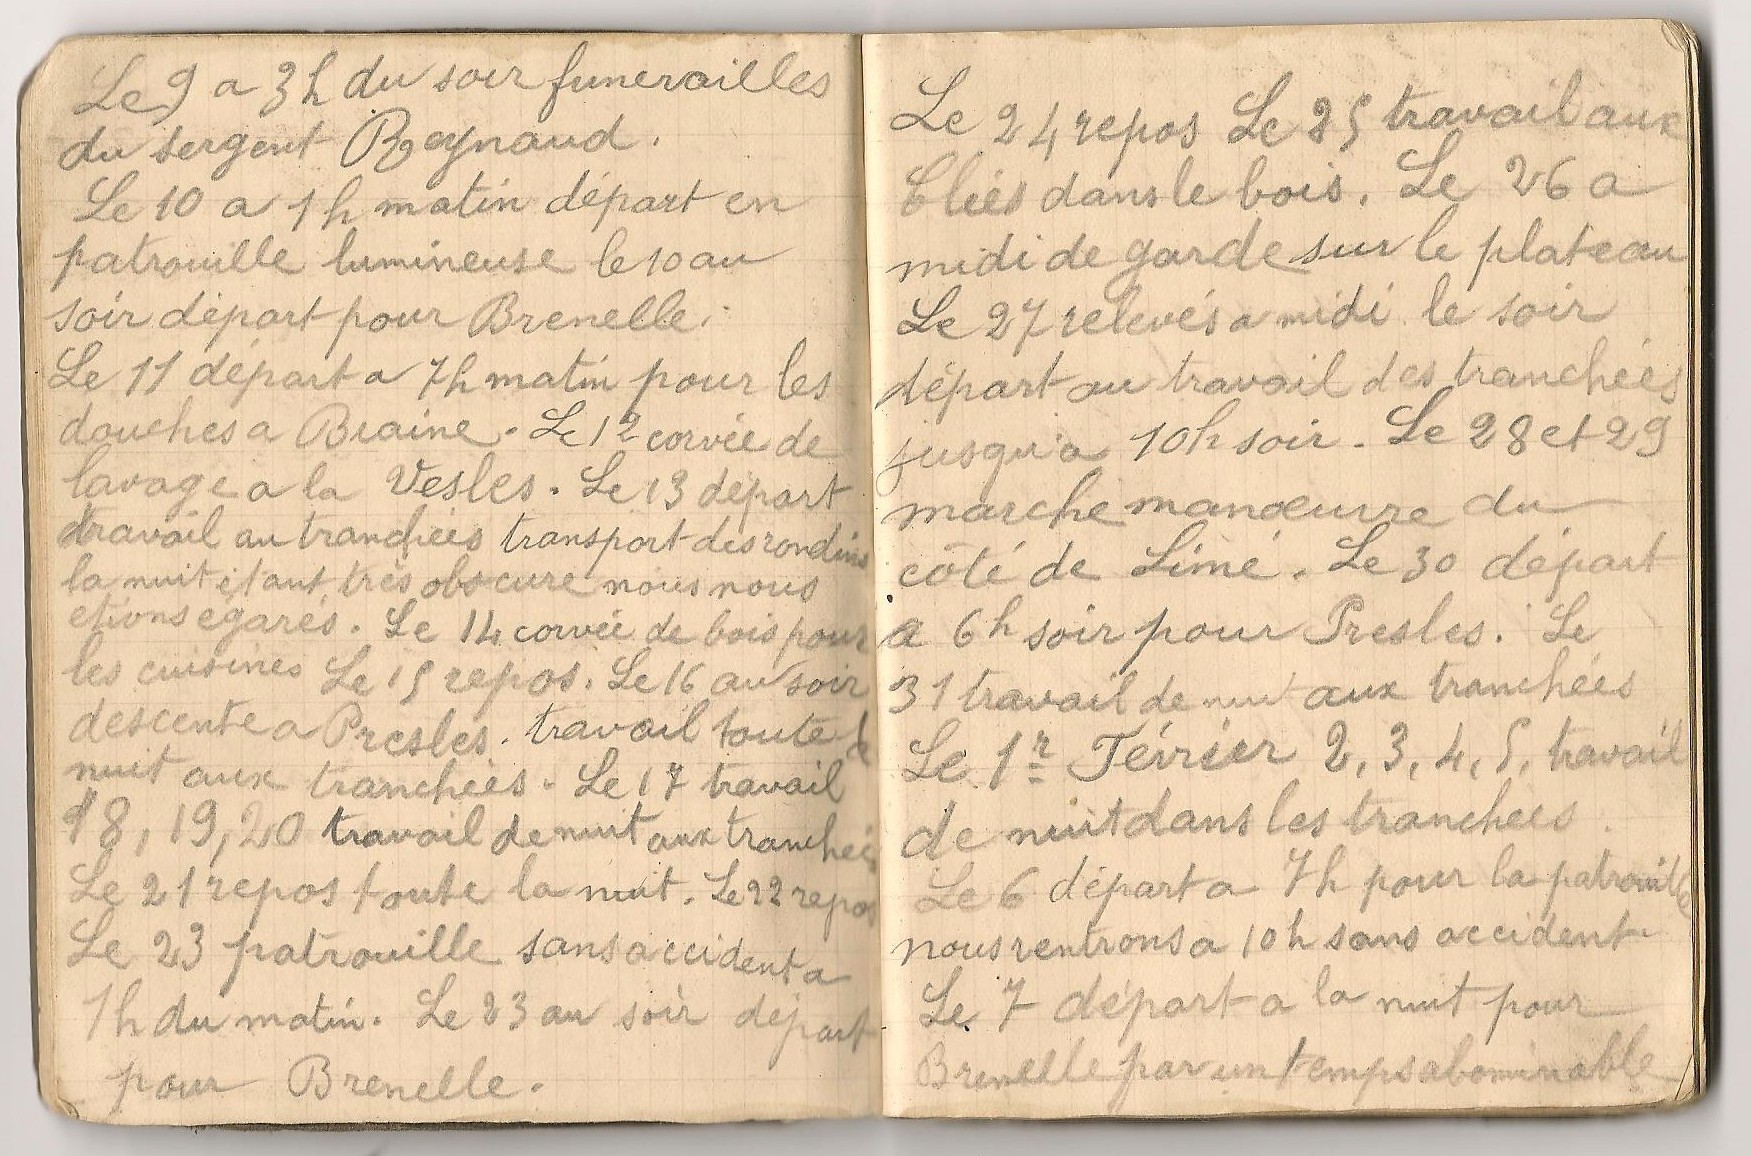 Le 9 a 3h du soir funerailles
du sergent Reynaud.
Le 10 a 1h matin départ en
patrouille lumineuse le 10 au
soir départ pour Brenelle.
Le 11 départ a 7h matin pour les
douches a Braine. Le 12 corvée de
lavage a la Vesles. Le 13 départ
travail au tranchées transport des rondins
la nuit étant très obscure nous nous
etions egarés. Le 14 corvée de bois pour
les cuisines Le 15 repos. Le 16 au soir
descente a Presles. travail toute la
nuit aux tranchées. Le 17 travail
18, 19, 20 travail de nuit aux tranchées
Le 21 repos toute la nuit. Le 22 repos
Le 23 patrouille sans accident a
1h du matin. Le 23 au soir départ
pour Brenelle.
Le 24 repos Le 25 travail aux
dans le bois. Le 26 a
midi de garde sur le plateau
Le 27 relevés a midi le soir
départ au travail des tranchées
jusqu'a 10h soir. Le 28 et 29
marche manœuvre du
côté de Limé. Le 30 départ
a 6h soir pour Presles. Le
31 travail de nuit aux tranchées
Le 1r Février 2, 3, 4, 5, travail
de nuit dans les tranchées.
Le 6 départ a 7h pour la patrouille
nous rentrons a 10h sans accident
Le 7 départ a la nuit pour
Brenelle par un temps abominable